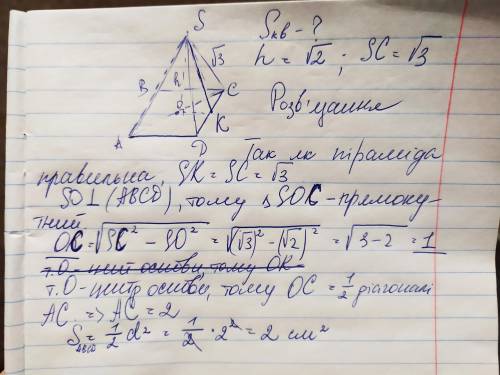 S
Sкв - ?
h = √2 ; SC = √3
√3
B
h
C
O
K
A
D
Розв'язання
Так як піраміда
правильна, SK = SC = √3
SO⊥(ABCD), тому △SOC - прямоку-
тний
OC = √(SC² - SO²) = √((√3)² - (√2)²) = √(3-2) = 1
т.О - ний основи, тому OK
т.О - центр основи, тому OC = 1/2 діагоналі
AC. => AC = 2
S ABCD = 1/2 d² = 1/2 · 2² = 2 см²